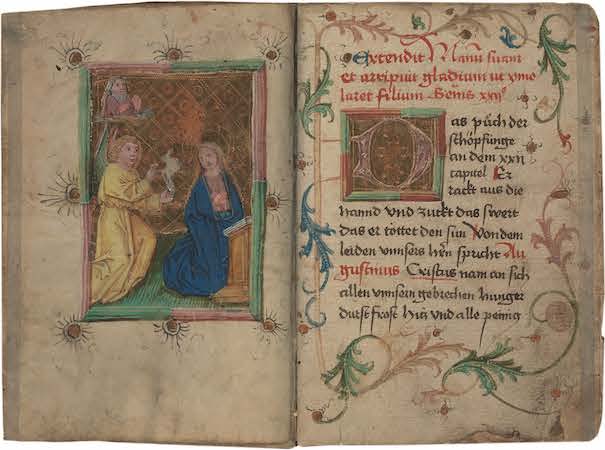 Extendit Manū suam
et arripuit gladium ut ymo
laret filium Geñis xxij°
Das půch der
schöpfunge
an dem xxij
capitel Er
rackt aus die
hannd vnd zuckt das swert
das er tottet den sun Von dem
leiden vnnsers hern̄ spricht Au
gustinus Cristus nam an sich
allen vnnsern gebrechen hunger
durst frost hitz vnd alle peinig